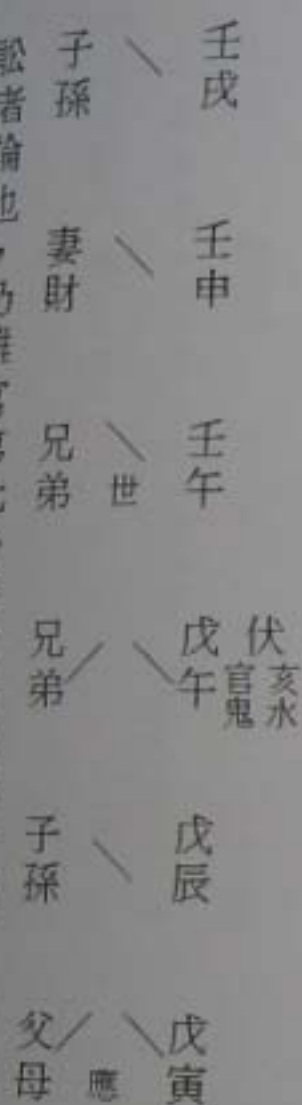 壬戌 子孫
壬申 妻財
壬午 世 兄弟
伏 亥水 官鬼 戊午 兄弟
戊辰 子孫
戊寅 應 父母
訟者論也